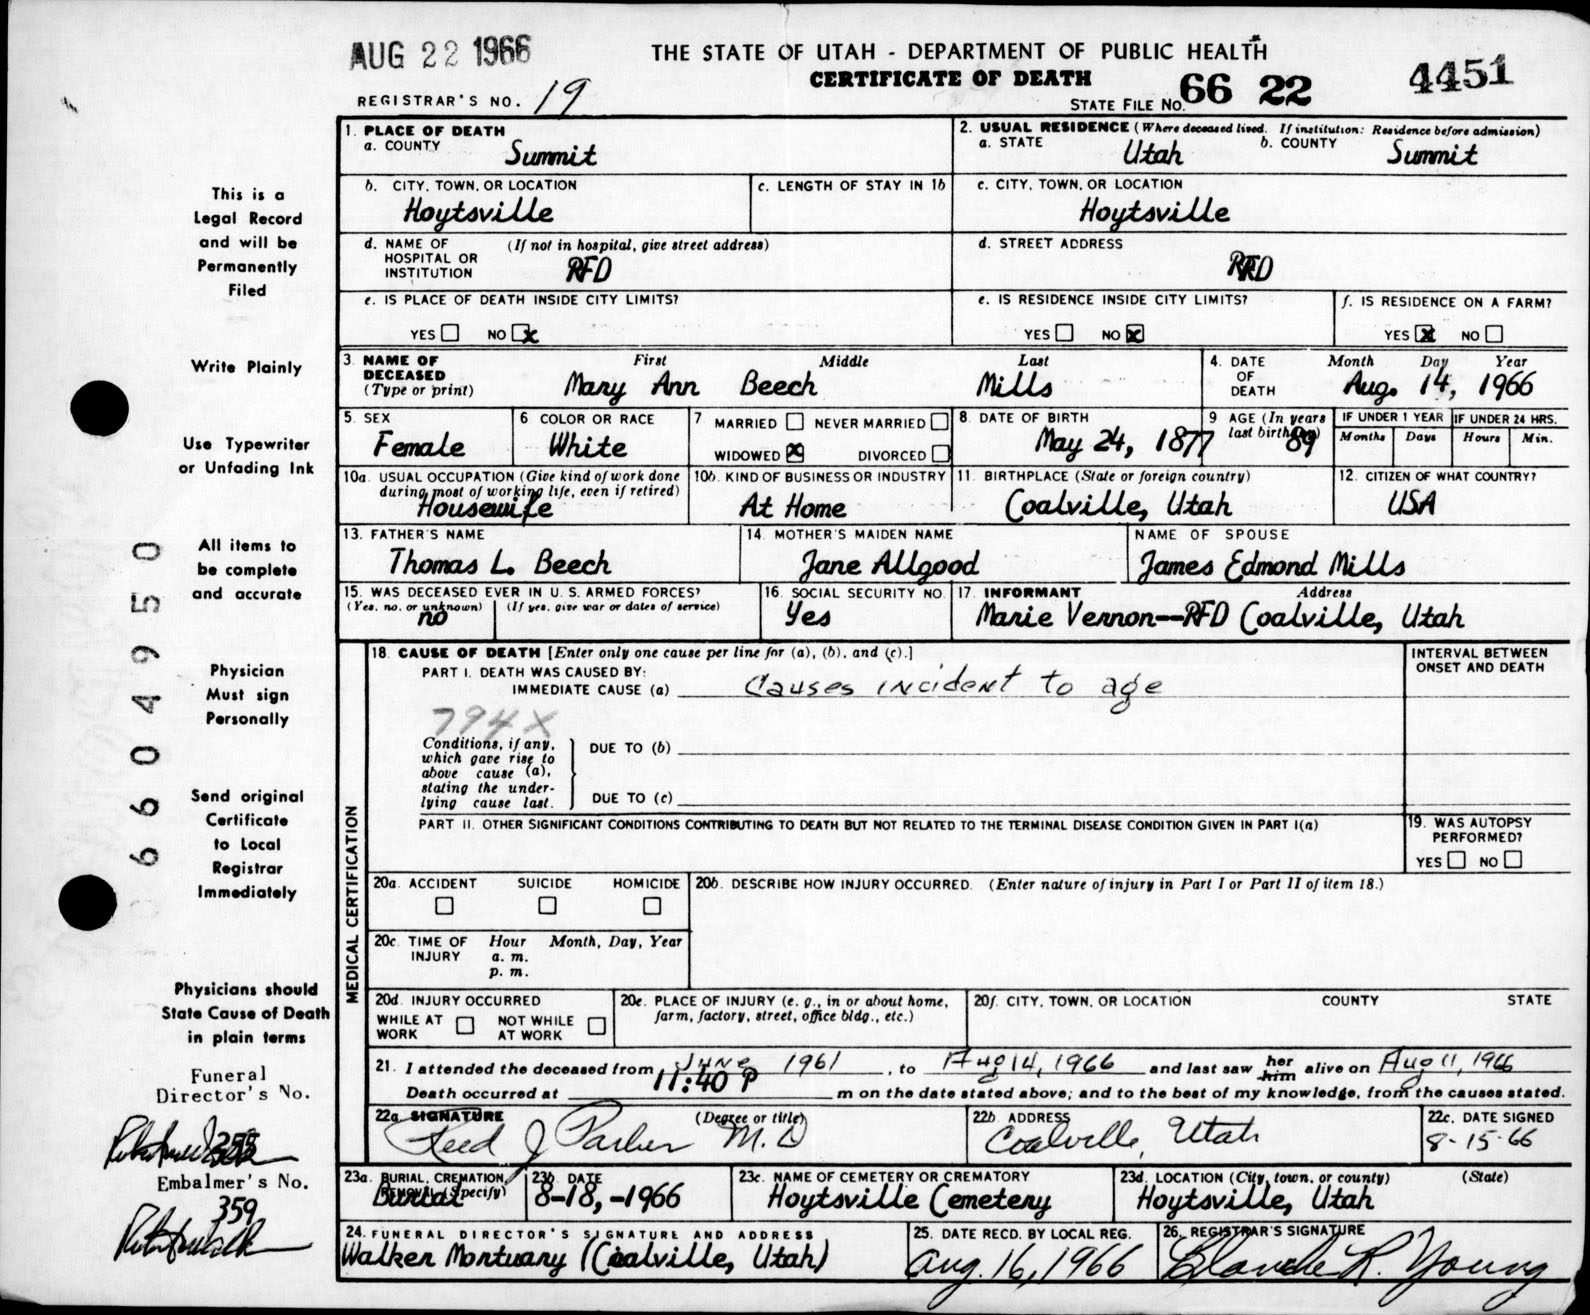 AUG 22 1966
THE STATE OF UTAH - DEPARTMENT OF PUBLIC HEALTH
CERTIFICATE OF DEATH
REGISTRAR'S NO. 19
STATE FILE NO. 66 22 4451
This is a
Legal Record
and will be
Permanently
Filed
Write Plainly
Use Typewriter
or Unfading Ink
All items to
be complete
and accurate
Physician
Must sign
Personally
Send original
Certificate
to Local
Registrar
Immediately
Physicians should
State Cause of Death
in plain terms
Funeral
Director's No.
359
Embalmer's No.
359
6604950
1. PLACE OF DEATH
a. COUNTY Summit
2. USUAL RESIDENCE (Where deceased lived. If institution: Residence before admission)
a. STATE Utah b. COUNTY Summit
b. CITY, TOWN, OR LOCATION
Hoytsville
c. LENGTH OF STAY IN 1b
c. CITY, TOWN, OR LOCATION
Hoytsville
d. NAME OF HOSPITAL OR INSTITUTION (If not in hospital, give street address)
RFD
d. STREET ADDRESS
RFD
e. IS PLACE OF DEATH INSIDE CITY LIMITS?
YES NO x
e. IS RESIDENCE INSIDE CITY LIMITS?
YES NO x
f. IS RESIDENCE ON A FARM?
YES x NO
3. NAME OF DECEASED (Type or print)
First Middle Last
Mary Ann Beech Mills
4. DATE OF DEATH Month Day Year
Aug. 14, 1966
5. SEX
Female
6 COLOR OR RACE
White
7 MARRIED NEVER MARRIED
WIDOWED x DIVORCED
8 DATE OF BIRTH
May 24, 1877
9 AGE (In years last birthday)
89
IF UNDER 1 YEAR
Months Days
IF UNDER 24 HRS.
Hours Min.
10a. USUAL OCCUPATION (Give kind of work done during most of working life, even if retired)
Housewife
10b. KIND OF BUSINESS OR INDUSTRY
At Home
11. BIRTHPLACE (State or foreign country)
Coalville, Utah
12. CITIZEN OF WHAT COUNTRY?
USA
13. FATHER'S NAME
Thomas L. Beech
14. MOTHER'S MAIDEN NAME
Jane Allgood
NAME OF SPOUSE
James Edmond Mills
15. WAS DECEASED EVER IN U. S. ARMED FORCES?
(Yes, no, or unknown) (If yes, give war or dates of service)
no
16. SOCIAL SECURITY NO.
Yes
17. INFORMANT Address
Marie Vernon--RFD Coalville, Utah
MEDICAL CERTIFICATION
18. CAUSE OF DEATH [Enter only one cause per line for (a), (b), and (c).]
INTERVAL BETWEEN ONSET AND DEATH
PART I. DEATH WAS CAUSED BY:
IMMEDIATE CAUSE (a) Causes incident to age
794X
Conditions, if any, which gave rise to above cause (a), stating the underlying cause last.
DUE TO (b)
DUE TO (c)
PART II. OTHER SIGNIFICANT CONDITIONS CONTRIBUTING TO DEATH BUT NOT RELATED TO THE TERMINAL DISEASE CONDITION GIVEN IN PART I(a)
19. WAS AUTOPSY PERFORMED?
YES NO
20a. ACCIDENT SUICIDE HOMICIDE
20b. DESCRIBE HOW INJURY OCCURRED. (Enter nature of injury in Part I or Part II of item 18.)
20c. TIME OF INJURY Hour Month, Day, Year
a. m.
p. m.
20d. INJURY OCCURRED
WHILE AT WORK NOT WHILE AT WORK
20e. PLACE OF INJURY (e. g., in or about home, farm, factory, street, office bldg., etc.)
20f. CITY, TOWN, OR LOCATION COUNTY STATE
21. I attended the deceased from June 1961, to Aug 14, 1966 and last saw her him alive on Aug 11, 1966
Death occurred at 11:40 P m on the date stated above; and to the best of my knowledge, from the causes stated.
22a SIGNATURE (Degree or title)
Reed J Parker M.D
22b. ADDRESS
Coalville, Utah
22c. DATE SIGNED
8-15-66
23a. BURIAL, CREMATION, REMOVAL (Specify)
Burial
23b DATE
8-18,-1966
23c. NAME OF CEMETERY OR CREMATORY
Hoytsville Cemetery
23d. LOCATION (City, town, or county) (State)
Hoytsville, Utah
24. FUNERAL DIRECTOR'S SIGNATURE AND ADDRESS
Walker Mortuary (Coalville, Utah)
25. DATE RECD. BY LOCAL REG.
Aug. 16, 1966
26. REGISTRAR'S SIGNATURE
Blanche R. Young